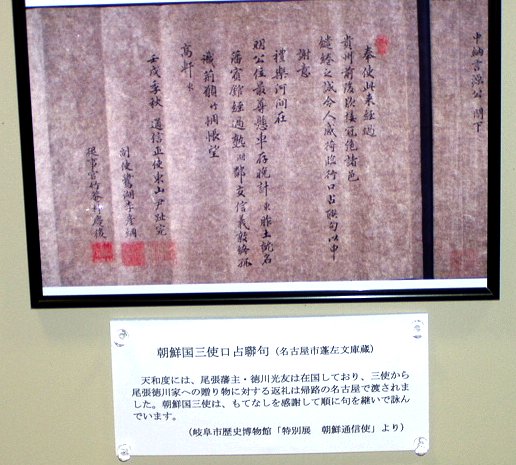 中納言源公 閤下
奉使此来經過
貴州前後欵接冠絶諸邑
繾綣之誠令人感荷臨行口占聯句以申
謝意
禮樂河間在
明公位最尊懸車存晩計東胙土記名
藩賓館經過熱湖鄰交信義敦終孤
悵望
高軒東
壬戌季秋 通信正使東山尹趾完
副使鷺湖李彦綱
從事官竹菴朴慶後
朝鮮国三使口占聯句（名古屋市蓬左文庫蔵）
天和度には、尾張藩主・徳川光友は在国しており、三使から
尾張徳川家への贈り物に対する返礼は帰路の名古屋で渡されま
した。朝鮮国三使は、もてなしを感謝して順に句を継いで詠ん
でいます。
（岐阜市歴史博物館「特別展 朝鮮通信使」より）